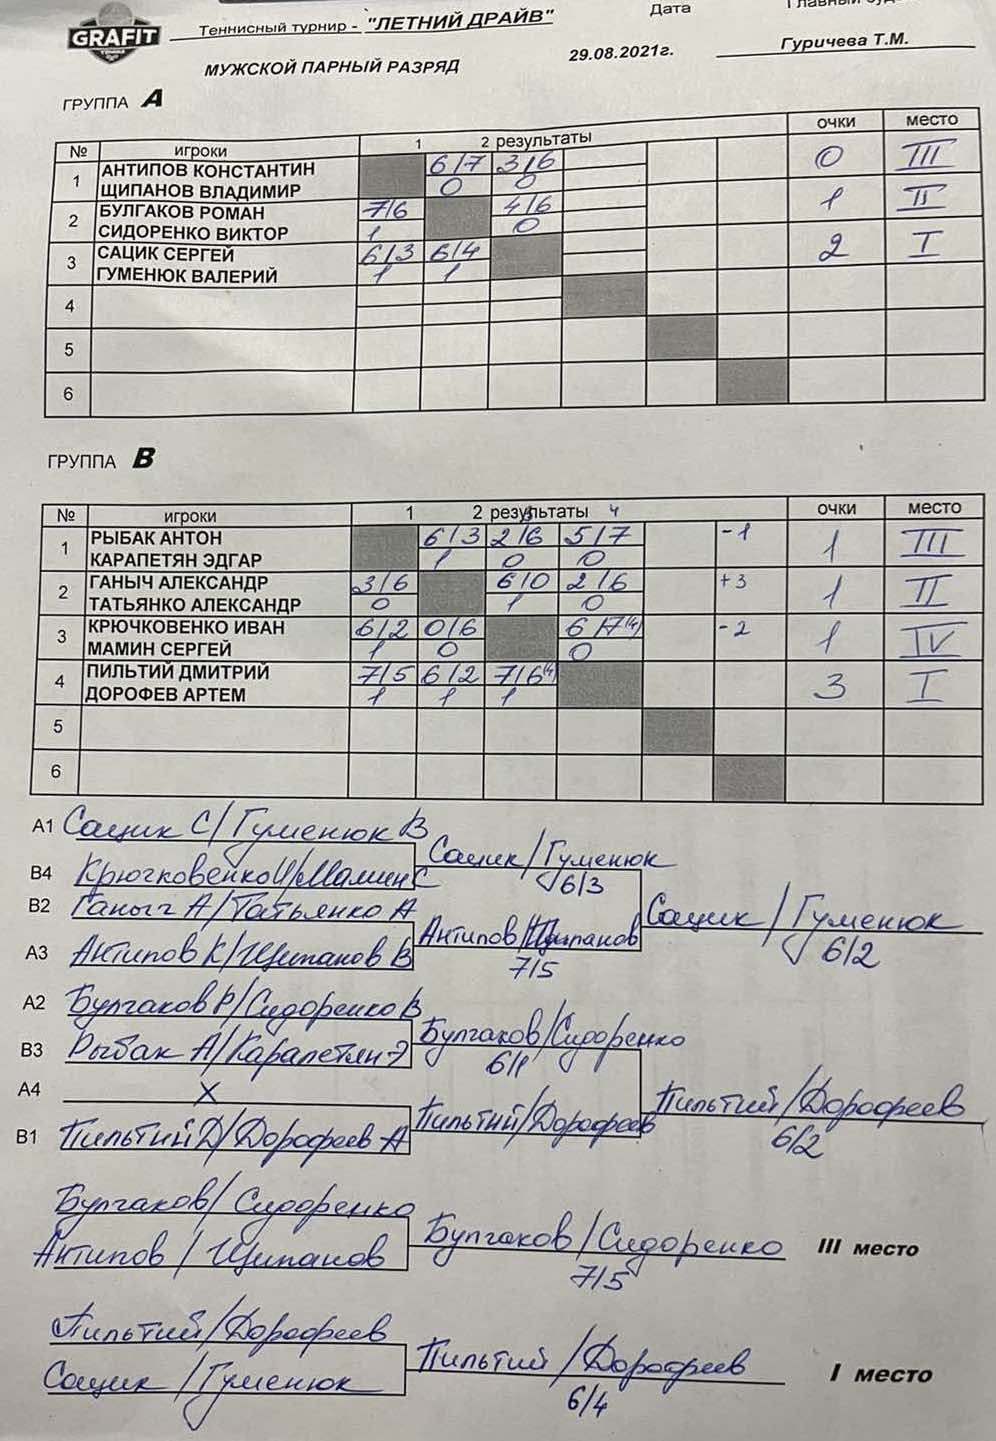 GRAFIT
Теннисный турнир - "ЛЕТНИЙ ДРАЙВ"
Дата
МУЖСКОЙ ПАРНЫЙ РАЗРЯД
29.08.2021г.
Гуричева Т.М.
ГРУППА A
№ игроки 1 2 результаты очки место
1 АНТИПОВ КОНСТАНТИН 6/7 3/6 0 III
ЩИПАНОВ ВЛАДИМИР 0 0
2 БУЛГАКОВ РОМАН 7/6 4/6 1 II
СИДОРЕНКО ВИКТОР 1 0
3 САЦИК СЕРГЕЙ 6/3 6/4 2 I
ГУМЕНЮК ВАЛЕРИЙ 1 1
4
5
6
ГРУППА B
№ игроки 1 2 результаты 3 4 очки место
1 РЫБАК АНТОН 6/3 2/6 5/7 -1 1 III
КАРАПЕТЯН ЭДГАР 1 0 0
2 ГАНЫЧ АЛЕКСАНДР 3/6 6/0 2/6 +3 1 II
ТАТЬЯНКО АЛЕКСАНДР 0 1 0
3 КРЮЧКОВЕНКО ИВАН 6/2 0/6 6/7(4) -2 1 IV
МАМИН СЕРГЕЙ 1 0 0
4 ПИЛЬТИЙ ДМИТРИЙ 7/5 6/2 7/6(4) 3 I
ДОРОФЕВ АРТЕМ 1 1 1
5
6
A1 Сацик С/Гуменюк В
Сацик/Гуменюк
B4 Крючковенко И/Мамин С
6/3
B2 Ганыч А/Татьянко А
Сацик/Гуменюк
6/2
Антипов/Щипанов
A3 Антипов К/Щипанов В
7/5
A2 Булгаков Р/Сидоренко В
Булгаков/Сидоренко
B3 Рыбак А/Карапетян Э
6/1
A4 X
Пильтий/Дорофеев
6/2
Пильтий/Дорофеев
B1 Пильтий Д/Дорофеев А
Булгаков/Сидоренко
Булгаков/Сидоренко III место
Антипов/Щипанов
7/5
Пильтий/Дорофеев
Пильтий/Дорофеев I место
Сацик/Гуменюк
6/4